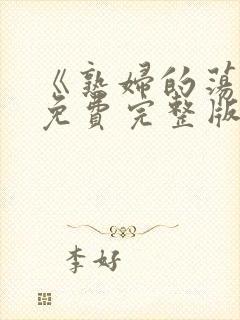 《熟婦的蕩
免費完整版
李好